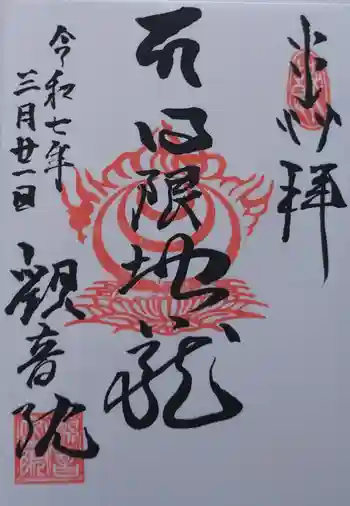 拝
日限地蔵
令和七年
三月廿一日
観音院